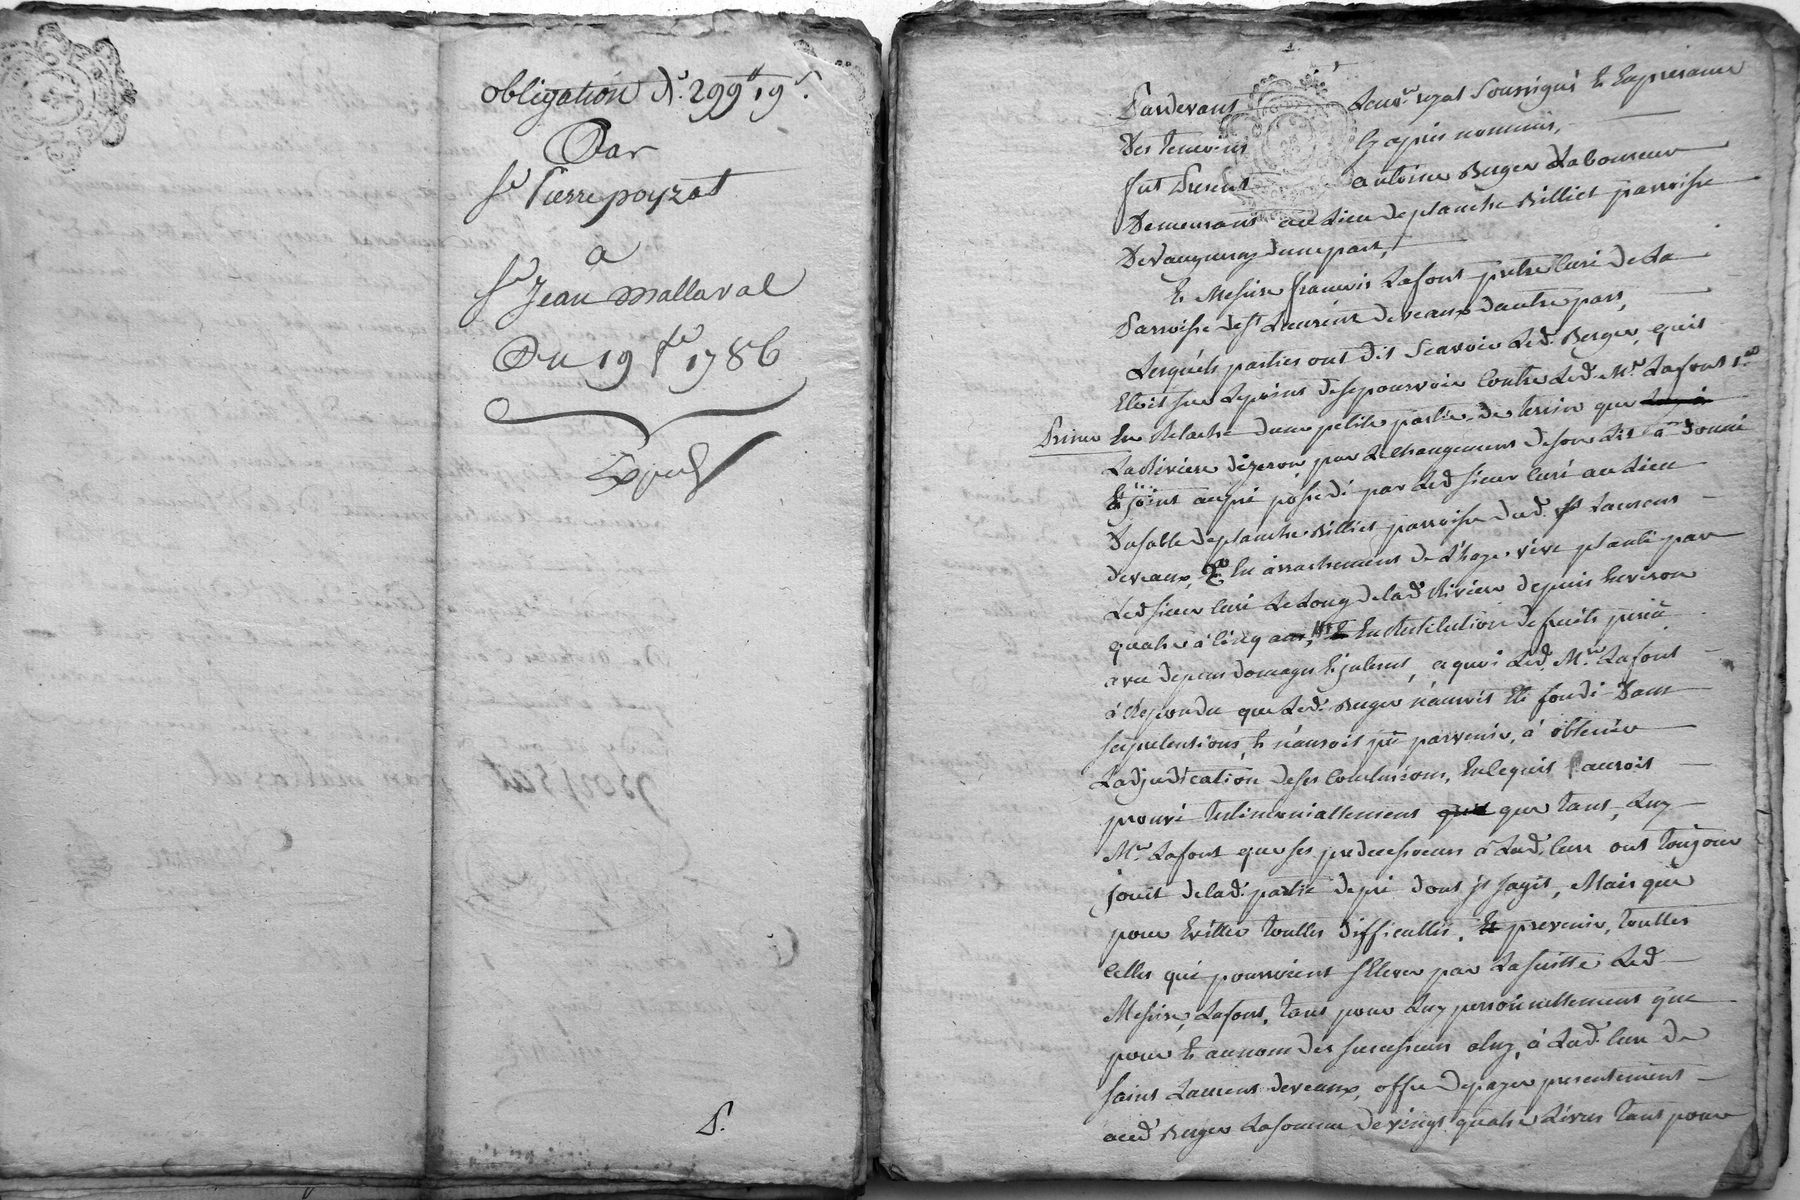 obligation de 299# 19s.
Par
Sr Pierre poyzat
a
Sr Jean Mallaval
Du 19 1786
Exped
P.
Pardevant Le nore royal Soussigné Et En presence
Des temoins Cy après nommés,
fut Present antoine Berger Laboureur
Demeurant au Lieu de planche Billiet parroisse
De Vaugneray d'une part,
Et Messire francois Lafont pretre Curé de La
Parroisse de St Laurent de veaux d'autre part,
Lesquels parties ont dit Scavoir Led. Berger, qu'il
Etoit sur Le point de se pourvoir Contre Led. Mre Lafont 1°
Primo En relache d'une petite partie de terrein que
La Riviere d'izeron par Le Changement de son Lit a donné
Et joint au pré possedé par Led Sieur Curé au Lieu
Du sable de planche Billiet parroisse dud. St Laurent
de veaux, 2° En arrachement de L'haye vive plantée par
Led Sieur Curé Le Long de lad Riviere depuis Environ
quatre à Cinq ans, 3° En Restitution de fruits
avec depens domages Et interets, a quoi Led. Mre Lafont
à Repondu que Led. Berger n'auroit Eté fondé Dans
ses pretentions, Et n'auroit pu parvenir, à obtenir
L'adjudication de ses Conclusions, En ce qu'il auroit
prouvé testimoniallement que tant, Luy
Mre Lafont que ses predecesseurs à Lad. Cure ont toujour
jouit de lad. partie de pré dont il s'agit, Mais que
pour Eviter touttes difficultés, Et prevenir, touttes
Celles qui pourroient s'Elever par La suitte Led
Messire, Lafont, tant pour Luy personnellement que
pour Et au nom des successeurs a luy, à Lad. Cure de
Saint Laurent de veaux, offre de payer presentement
aud. Berger La somme de vingt quatre Livres tant pour